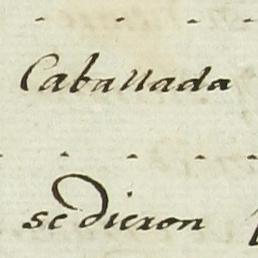 Caballada
se dieron